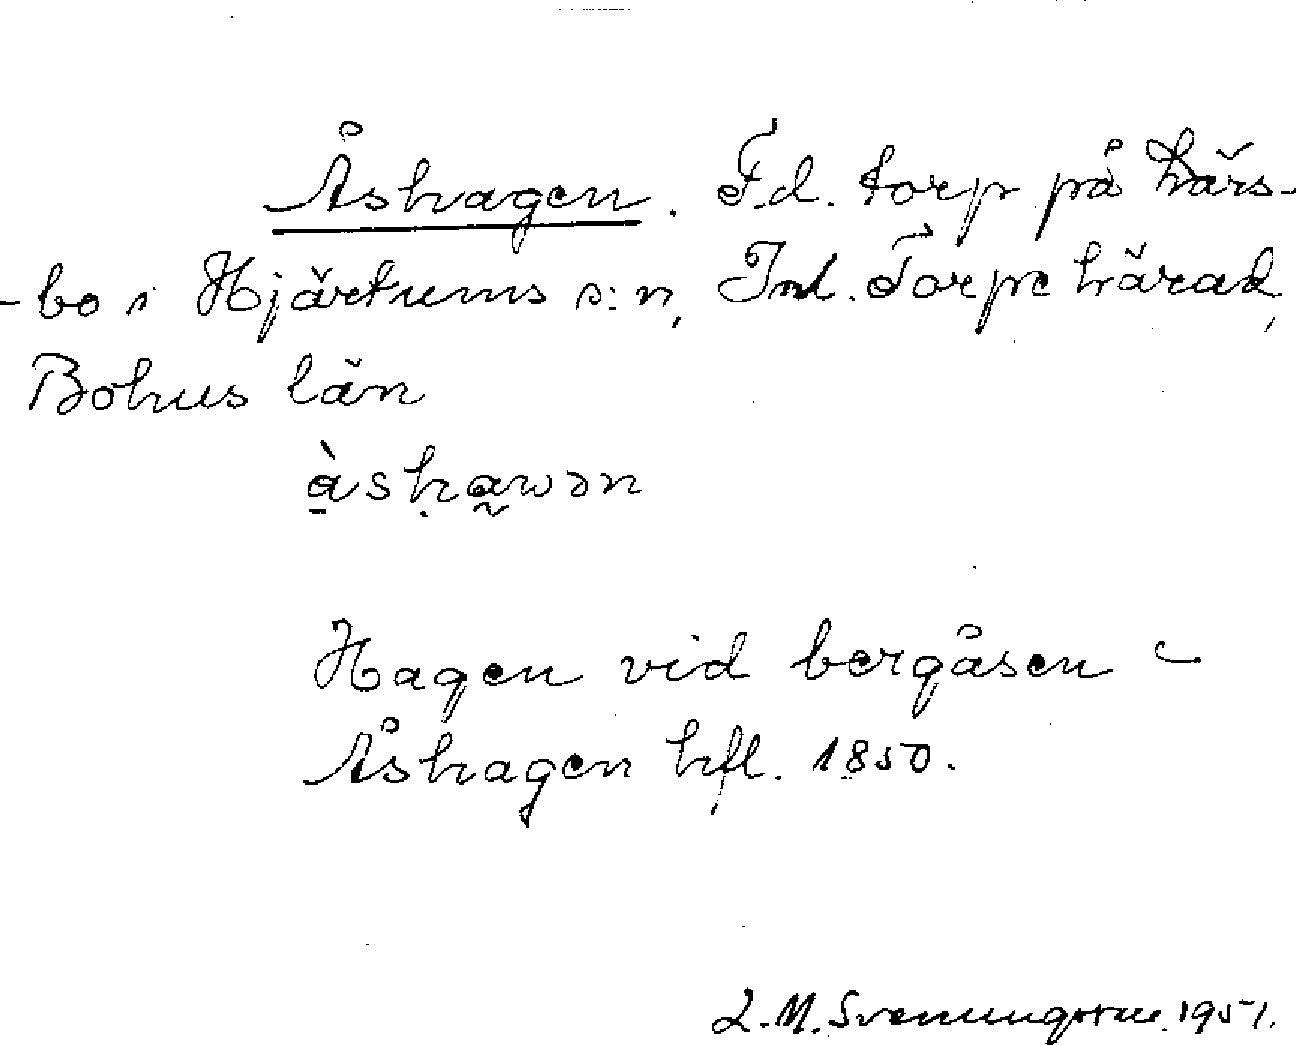 Åshagen. F.d. torp på Härs-
-bo i Hjärtums s:n, Inl. Torpe härad,
Bohus län
à̱sḥa̰wən
Hagen vid bergåsen
Åshagen hfl. 1850.
L.M. Svenungsson 1951.